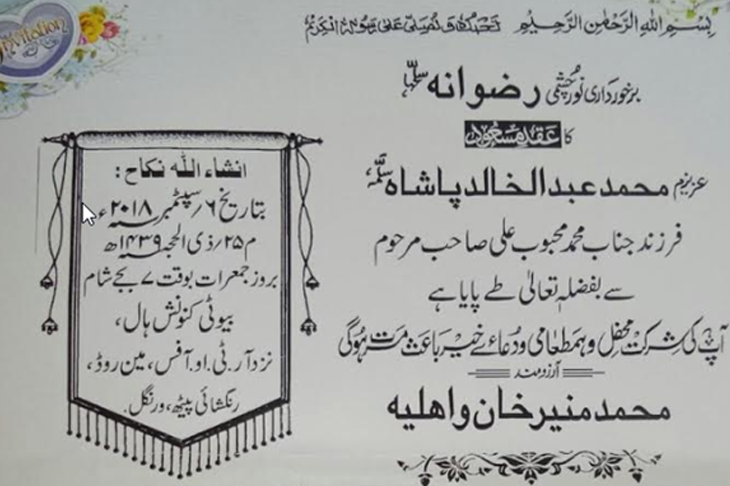 Invitation
بِسْمِ اللهِ الرَّحْمٰنِ الرَّحِيْمِ نَحْمَدُهٗ وَنُصَلِّیْ عَلیٰ رَسُوْلِهِ الْكَرِیْم
برخورداری نورچشمی رضوانہ سلمہا
کا عقد مسعود
عزیزم محمد عبدالخالد پاشاہ سلمہٗ
فرزند جناب محمد محبوب علی صاحب مرحوم
سے بفضلہٖ تعالیٰ طے پایا ہے
آپ کی شرکت محفل و ہمطعامی و دعائے خیر باعث مسرت ہوگی
آرزومند
محمد منیر خان و اھلیہ
انشاء اللہ نکاح:
بتاریخ ۶/ سپٹمبر ۲۰۱۸ء
م ۲۵/ ذی الحجہ ۱۴۳۹ھ
بروز جمعرات بوقت ۷ بجے شام
بیوٹی کنونشن ہال،
نزد آر.ٹی.او.آفس، مین روڈ،
رنگشائی پیٹھ، ورنگل.